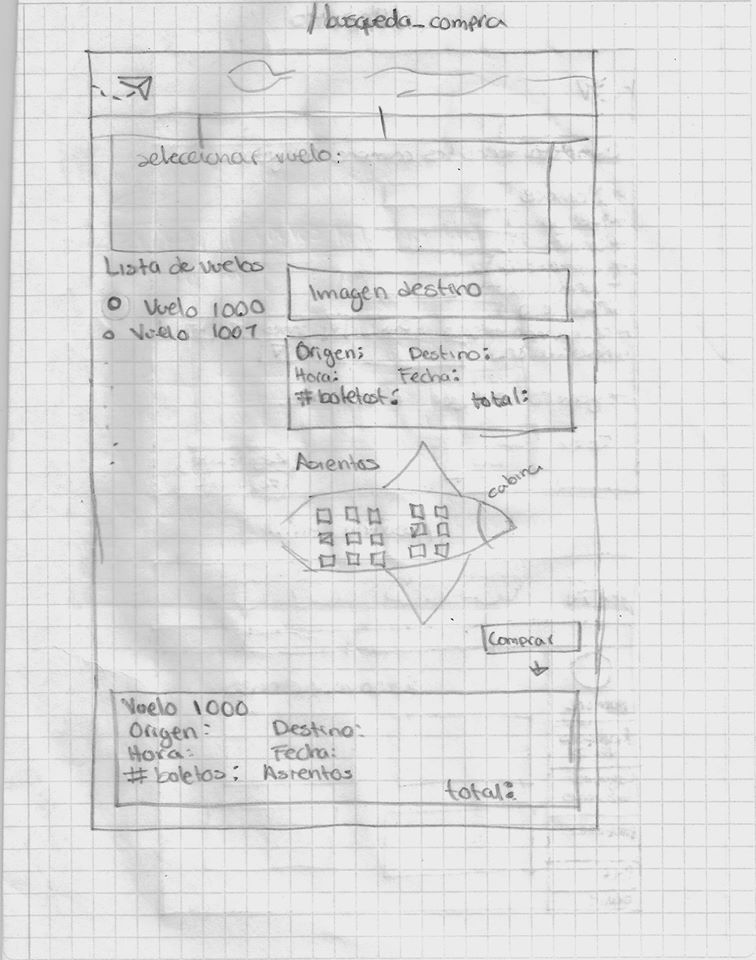 /busqueda_compra
seleccionar vuelo:
Lista de vuelos
Vuelo 1000
Vuelo 1001
Imagen destino
Origen: Destino:
Hora: Fecha:
#boletos: total:
Asientos
cabina
Comprar
Vuelo 1000
Origen: Destino:
Hora: Fecha:
#boletos: Asientos
total: